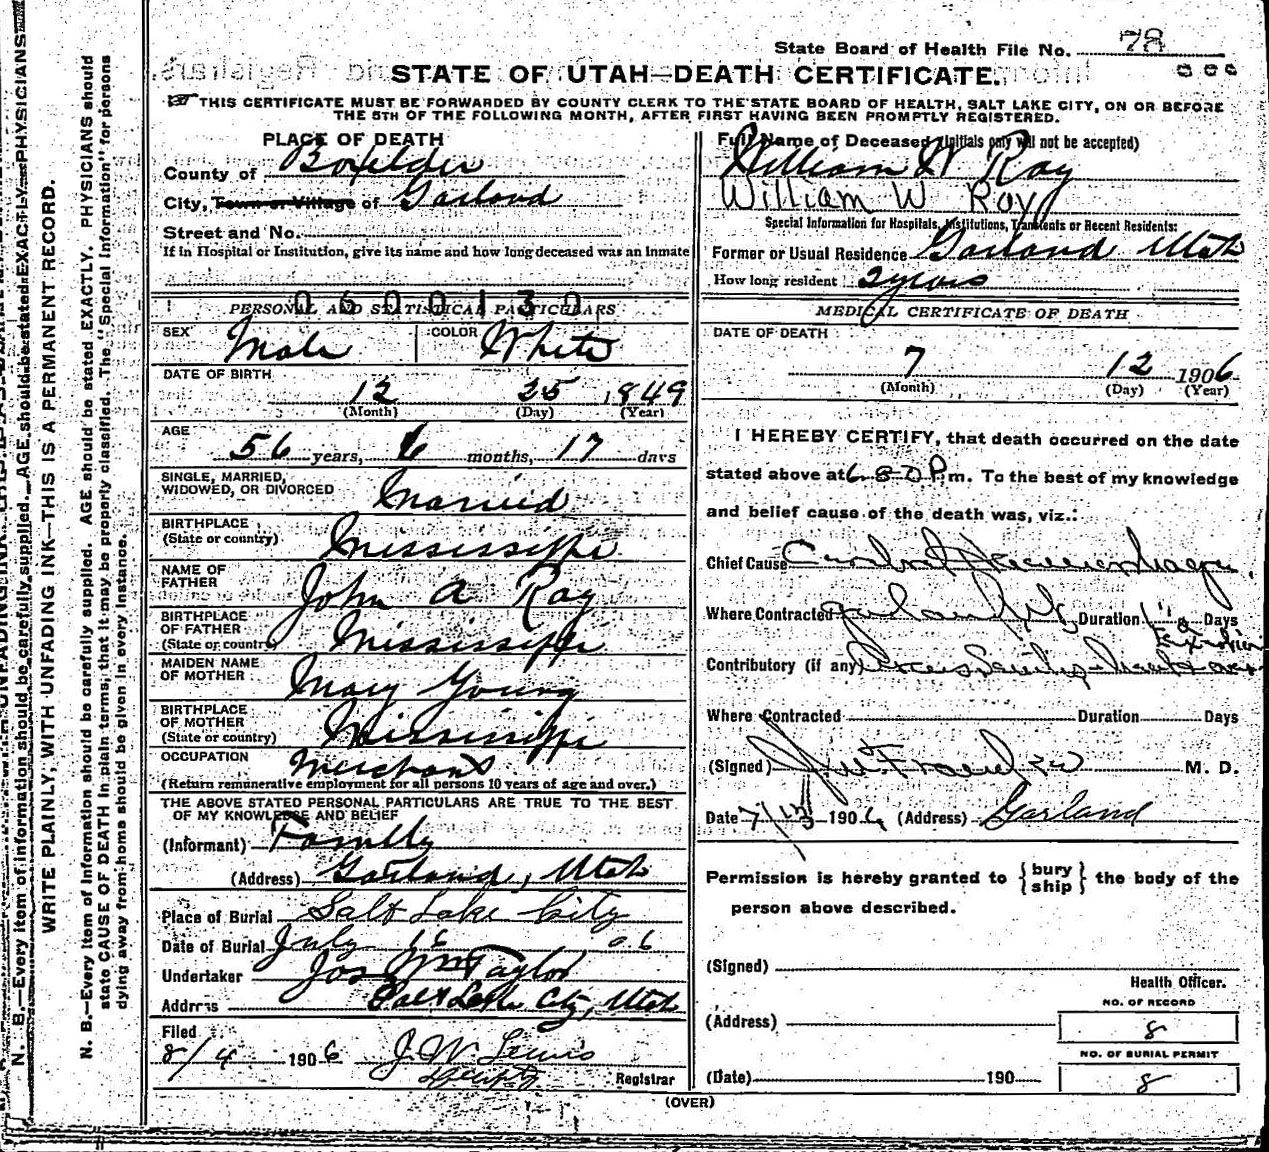 State Board of Health File No. 78
STATE OF UTAH—DEATH CERTIFICATE.
THIS CERTIFICATE MUST BE FORWARDED BY COUNTY CLERK TO THE STATE BOARD OF HEALTH, SALT LAKE CITY, ON OR BEFORE
THE 5TH OF THE FOLLOWING MONTH, AFTER FIRST HAVING BEEN PROMPTLY REGISTERED.
PLACE OF DEATH
County of Boxelder
City, Town or Village of Garland
Street and No.
If in Hospital or Institution, give its name and how long deceased was an inmate
0600130
PERSONAL AND STATISTICAL PARTICULARS
SEX Male COLOR White
DATE OF BIRTH
12 25 1849
(Month) (Day) (Year)
AGE
56 years, 6 months, 17 days
SINGLE, MARRIED,
WIDOWED, OR DIVORCED Married
BIRTHPLACE
(State or country) Mississippi
NAME OF
FATHER John A Ray
BIRTHPLACE
OF FATHER
(State or country) Mississippi
MAIDEN NAME
OF MOTHER Mary Young
BIRTHPLACE
OF MOTHER
(State or country) Mississippi
OCCUPATION Merchant
(Return remunerative employment for all persons 10 years of age and over.)
THE ABOVE STATED PERSONAL PARTICULARS ARE TRUE TO THE BEST
OF MY KNOWLEDGE AND BELIEF
(Informant) Family
(Address) Garland, Utah
Place of Burial Salt Lake City
Date of Burial July 16 06
Undertaker Jos Wm Taylor
Address Salt Lake City, Utah
Filed
8/4 1906 J. W. Lewis
Deputy Registrar
(OVER)
Full Name of Deceased (Initials only will not be accepted)
William W. Ray
William W Ray
Special Information for Hospitals, Institutions, Transients or Recent Residents:
Former or Usual Residence Garland Utah
How long resident 2 years
MEDICAL CERTIFICATE OF DEATH
DATE OF DEATH
7 12 1906
(Month) (Day) (Year)
I HEREBY CERTIFY, that death occurred on the date
stated above at P.m. To the best of my knowledge
and belief cause of the death was, viz.:
Chief Cause Hemorrhage.
Where Contracted Duration Days
Contributory (if any)
Where Contracted Duration Days
(Signed) M. D.
Date 7/13 1906 (Address) Garland
Permission is hereby granted to {bury
ship} the body of the
person above described.
(Signed)
Health Officer.
NO. OF RECORD
(Address) 8
NO. OF BURIAL PERMIT
(Date) 190 8
N. B.—Every item of information should be carefully supplied. AGE should be stated EXACTLY. PHYSICIANS
WRITE PLAINLY, WITH UNFADING INK—THIS IS A PERMANENT RECORD.
N. B.—Every item of information should be carefully supplied. AGE should be stated EXACTLY. PHYSICIANS should
state CAUSE OF DEATH in plain terms, that it may be properly classified. The "Special Information" for persons
dying away from home should be given in every instance.